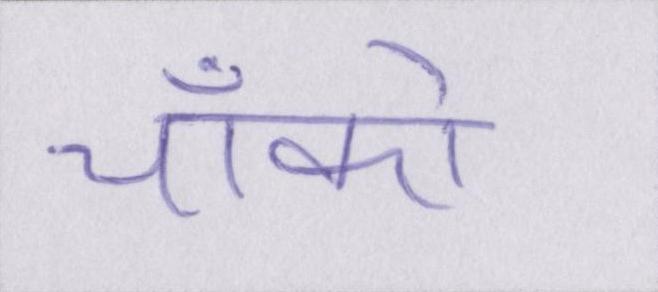 चाँको